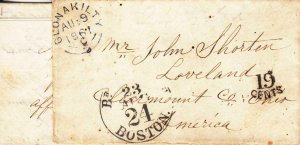 CLONAKILTY
AU 9
1861
Mr John Shorten
Loveland
Clearmount Co. Ohio
America
19
CENTS
Br
23
24
BOSTON
aff